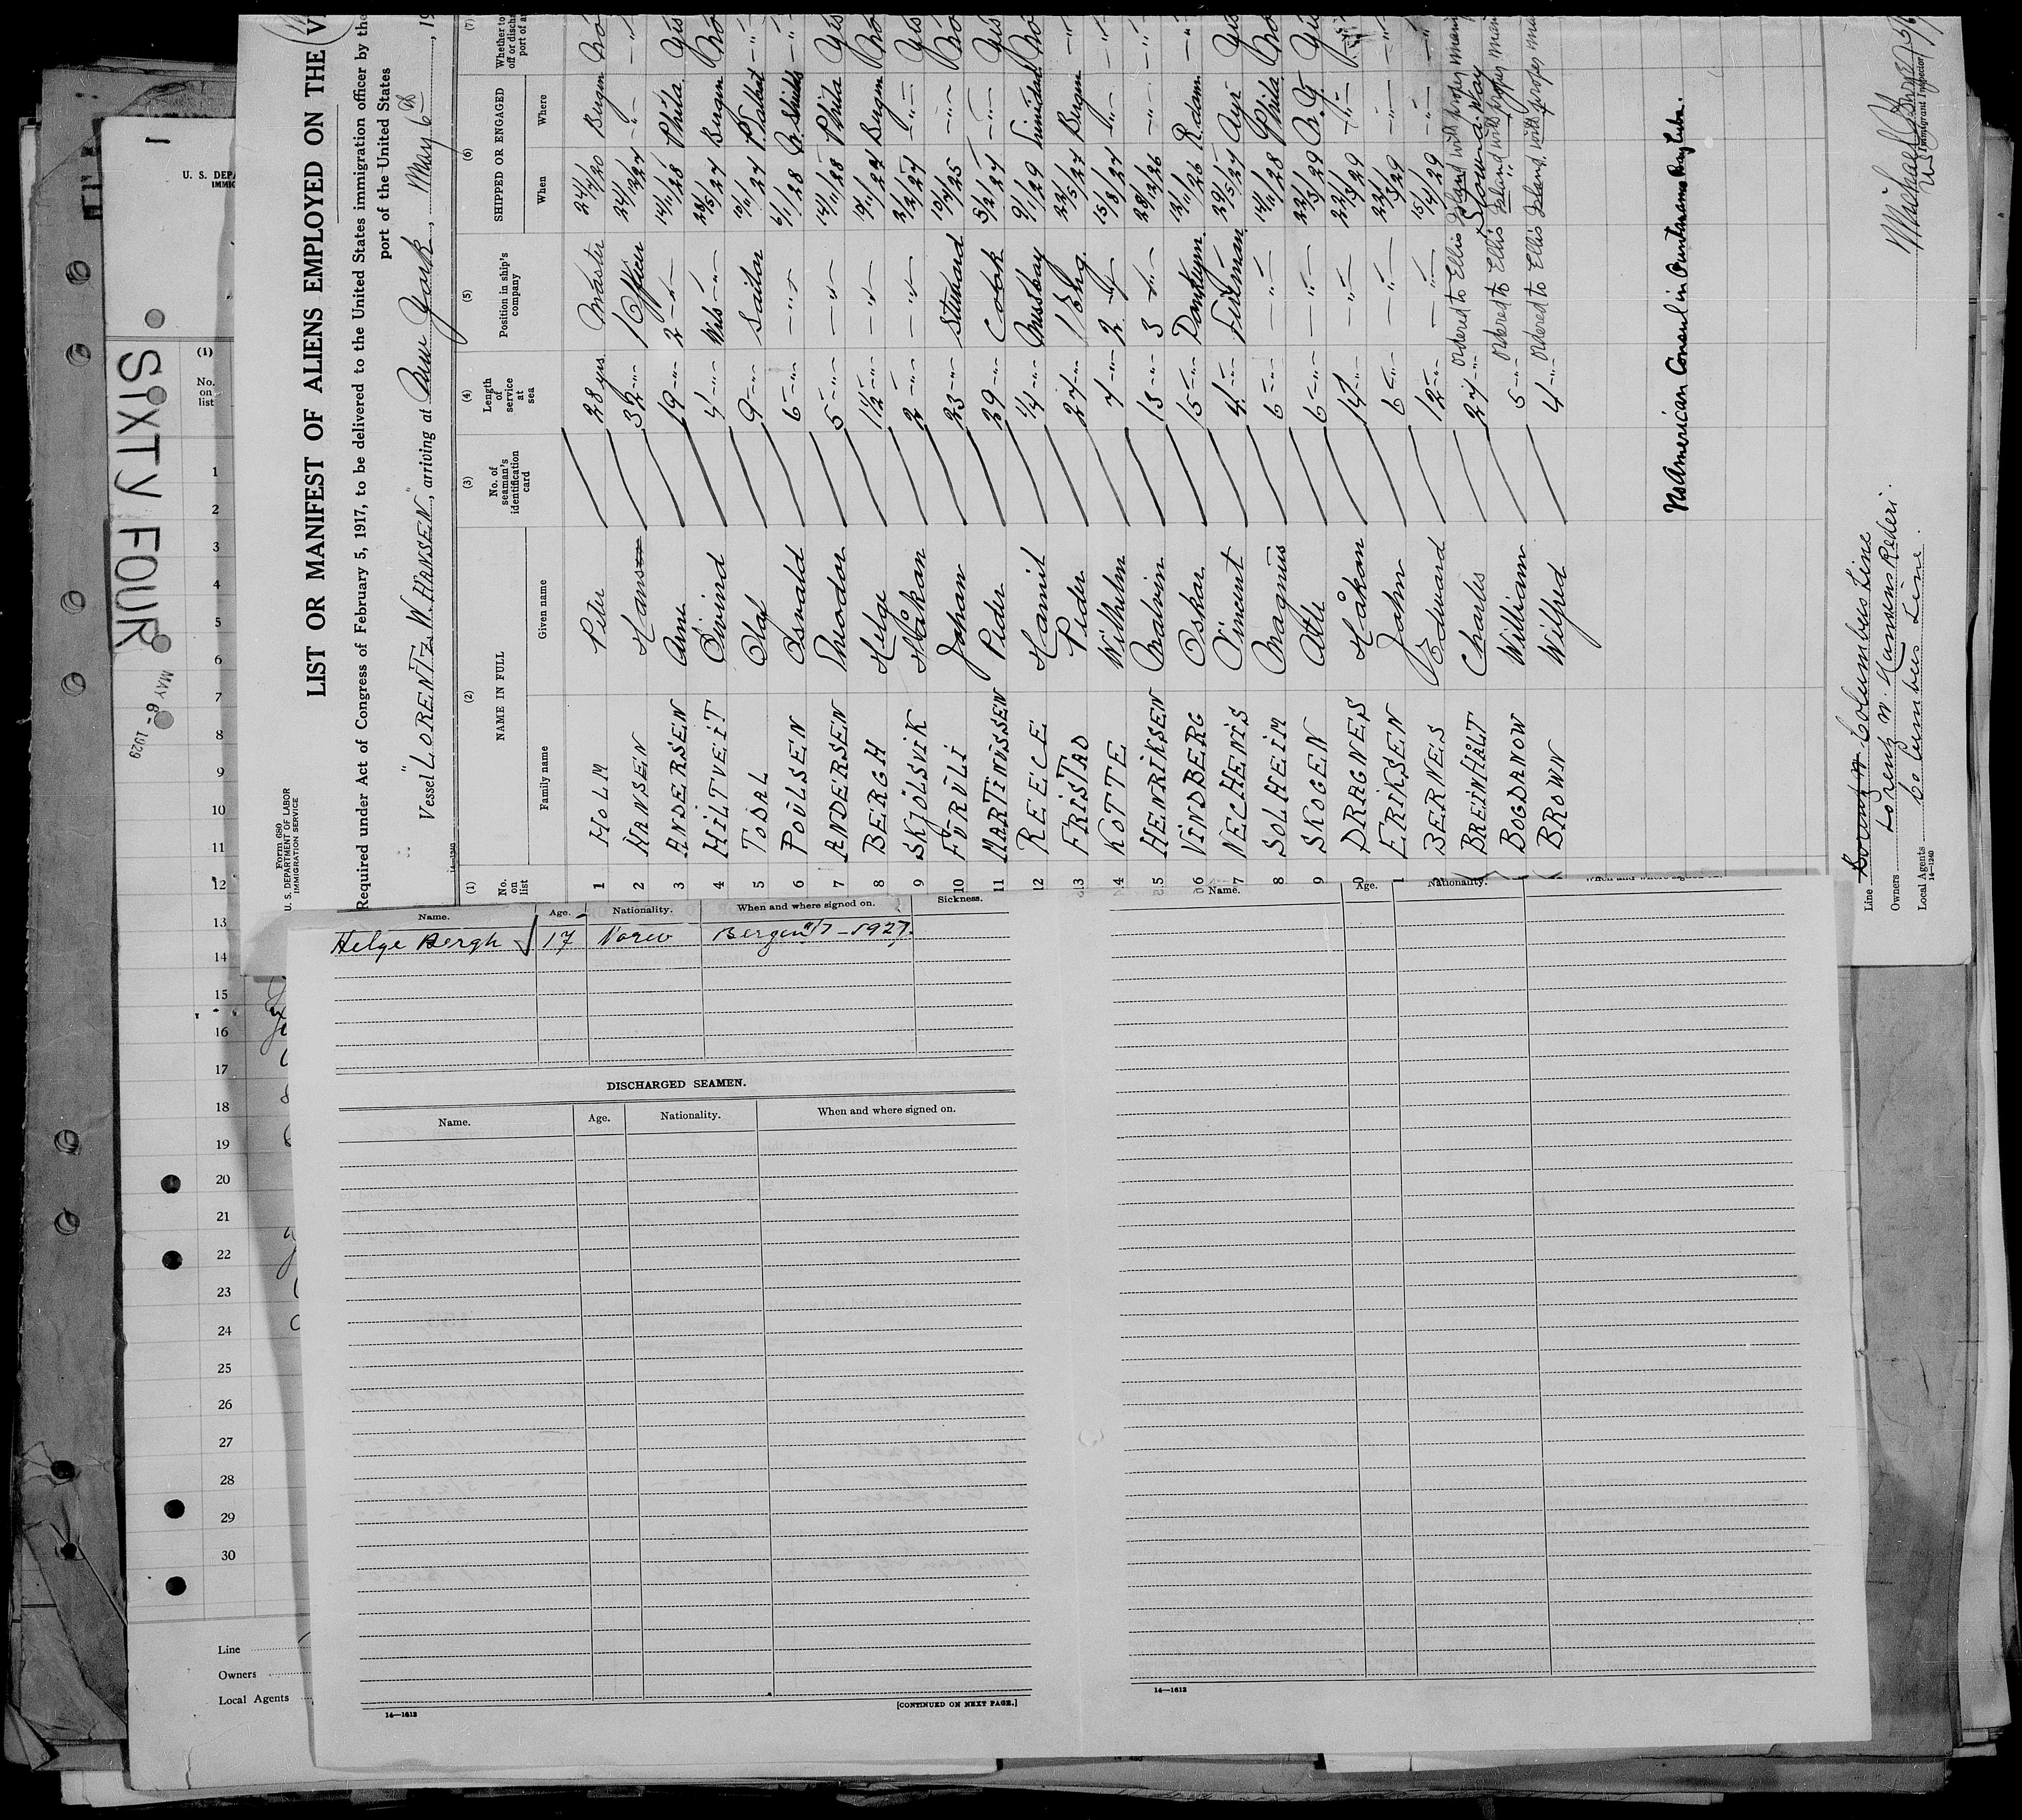 Form 680
U. S. DEPARTMENT OF LABOR
IMMIGRATION SERVICE
LIST OR MANIFEST OF ALIENS EMPLOYED ON THE
Required under Act of Congress of February 5, 1917, to be delivered to the United States immigration officer by the
port of the United States
Vessel "LORENTZ W. HANSEN", arriving at New York, May 6th, 19
14—1240
(1) (2) (3) (4) (5) (6) (7)
No. on list
NAME IN FULL
Family name Given name
No. of seaman's identification card
Length of service at sea
Position in ship's company
SHIPPED OR ENGAGED
When Where
Whether to
off or disch
port of a
1 HOLM Peter 28 yrs Master 24/4/20 Bergen No
2 HANSEN Hans 32 -"- 1 Officer 24/12/27 -"- -"-
3 ANDERSEN Arne 19 -"- 2 -"- 14/11/28 Phila. Yes
4 HILTVEIT Eivind 4 -"- Wrls -"- 28/5/27 Bergen No
5 TODAL Olaf 9 -"- Sailor 10/11/27 P. Talbot -"-
6 POULSEN Osvald 6 -"- -"- 6/11/28 -"-
7 ANDERSEN Theodor 5 -"- -"- 14/11/28 Phila Yes
8 BERGH Helge 1½ -"- -"- 19/11/27 Bergen No
9 SKJÖLSVIK Håkan 2 -"- -"- 2/2/27 -"- Yes
10 FURULI Johan 23 -"- Steward 10/7/25 -"- No
11 MARTINUSSEN Peder 29 -"- Cook 5/2/27 -"- Yes
12 REECE Hamil 1/4 -"- Messboy 9/1/29 Trinidad No
13 FRISTAD Peder 27 -"- 1 Eng. 22/5/27 Bergen -"-
14 KOTTE Wilhelm 7 -"- 2 -"- 15/8/27 -"- -"-
5 HENRIKSEN Malvin 13 -"- 3 -"- 28/12/26 -"- -"-
6 VINDBERG Oskar 15 -"- Donkeym. 12/11/26 R.dam -"-
7 NECHENIS Vincent 4 -"- Fireman 29/5/27 Ayr Yes
8 SOLHEIM Magnus 6 -"- -"- 14/11/28 Phila. No
9 SKOGEN Atle 6 -"- -"- 22/3/29 Yes
0 DRAGNES Håkan 14 -"- -"- 22/3/29 -"-
1 ERIKSEN John 6 -"- -"- 22/3/29 -"-
2 BERNES Edward 12 -"- -"- 15/4/29 -"-
BREINHALT Charles 27 -"- Ordered to Ellis Island with proper
Stowaway
BOGDANOW William 5 -"- Ordered to Ellis Island with proper
BROWN Wilfred 4 -"- Ordered to Ellis Island with proper
No American Consul in
Line Columbus Line
Owners Lorentz W. Hansens Rederi.
Local Agents Columbus Line.
14—1240
Immigrant Inspector
1
SIXTY FOUR
MAY 6 - 1929
U. S. DEPA
IMMIG
(1)
No.
on
list
1
2
3
4
5
6
7
8
9
10
11
12
13
14
15
16
17
18
19
20
21
22
23
24
25
26
27
28
29
30
Line
Owners
Local Agents
Name. Age. Nationality. When and where signed on. Sickness.
Helge Bergh 17 Norw Bergen 1927.
DISCHARGED SEAMEN.
Name. Age. Nationality. When and where signed on.
14—1612
[CONTINUED ON NEXT PAGE.]
Name. Age. Nationality. When and where signed on.
14—1612